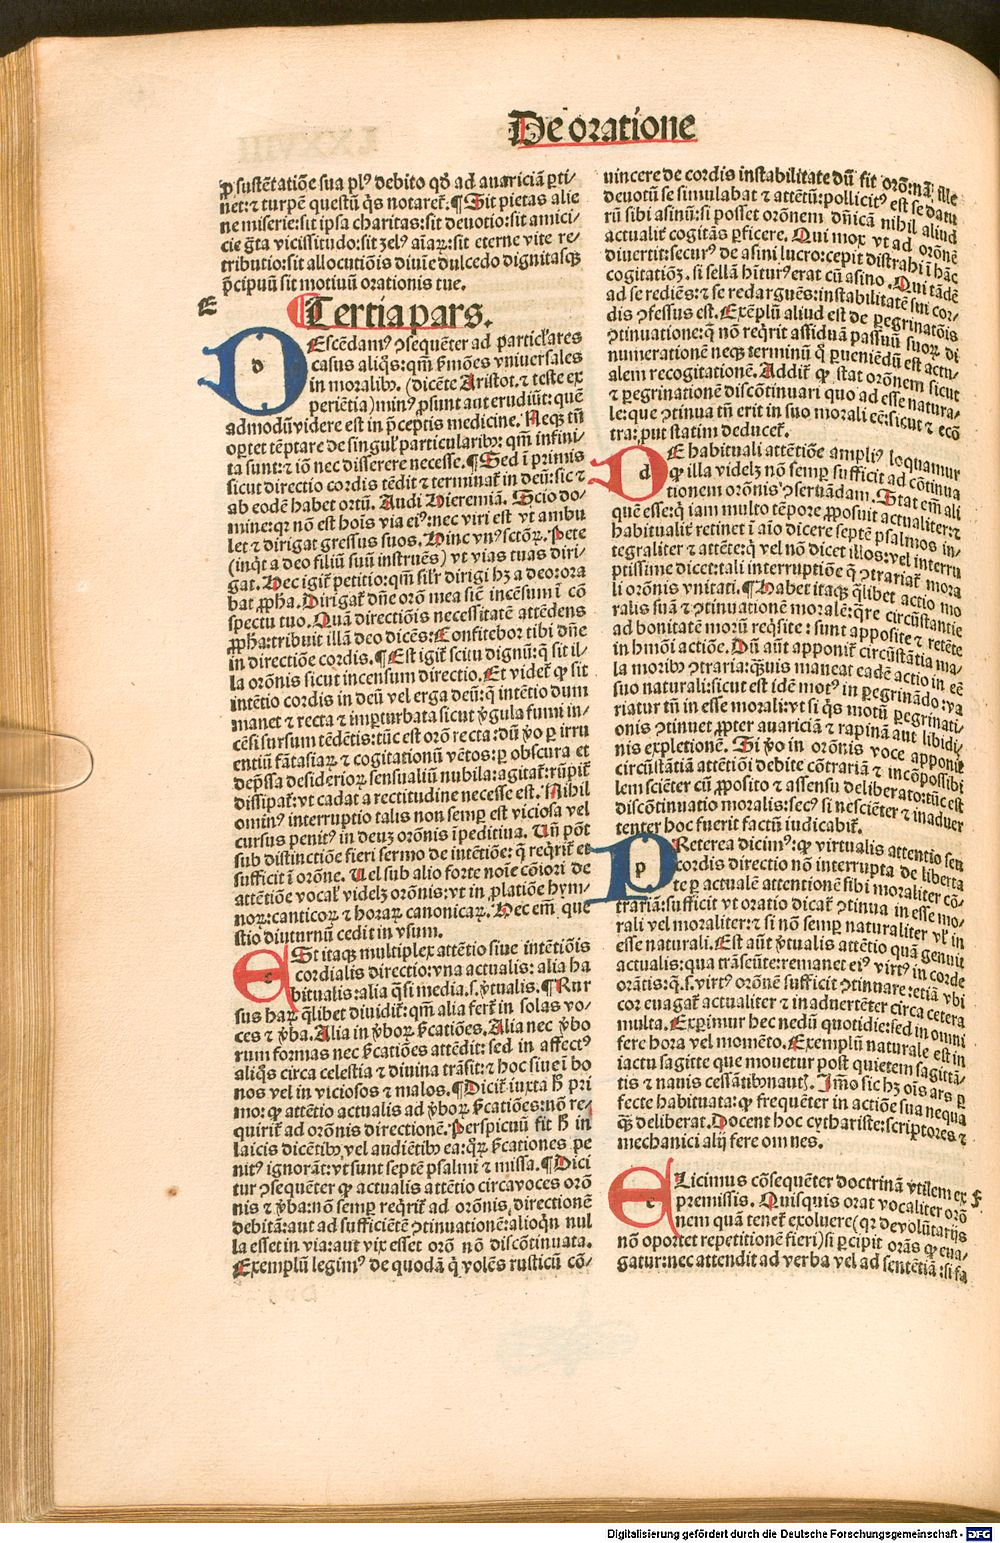 De oratione
ꝓ sustētatiōe sua plꝰ debito qđ ad auariciā ꝑti-
net: ⁊ turpē questū q̄s notaret̄. ¶ Sit pietas alie
ne miserie: sit ipsa charitas: sit deuotio: sit amici-
cie gr̄a vicissitudo: sit zelꝰ aīaꝝ: sit eterne vite re-
tributio: sit allocutiōis diuīe dulcedo dignitasqꝫ
p̄cipuū sit motiuū orationis tue.
E
¶ Tertia pars.
DEscēdamꝰ ꝯsequēter ad particl̓ares
casus aliq̄s: qm̄ ẜmōes vniuersales
in moralibꝰ. (dicēte Aristot. ⁊ teste ex
periētia) minꝰ ꝓsunt aut erudiūt: quē
admodū videre est in p̄ceptis medicine. Neqꝫ tn̄
oꝑtet tēptare de singul̓ particularibꝰ: qm̄ infini-
ta sunt: ⁊ iō nec disserere necesse. ¶ Sed ī primis
sicut directio cordis tēdit ⁊ terminat̄ in deū: sic ⁊
ab eodē habet ortū. Audi Hieremiā. Scio do-
mine: qꝛ nō est hoīs via eiꝰ: nec viri est vt ambu
let ⁊ dirigat gressus suos. Hinc vnꝰ sctōꝝ. Pete
(inq̇t a deo filiū suū instruēs) vt vias tuas diri-
gat. Hec igit̄ petitio: qm̄ silr̄ dirigi hꝫ a deo: ora
bat ꝓph̓a. Dirigat̄ dn̄e orō mea sic̄ incēsum ī cō
spectu tuo. Quā directiōis necessitatē attēdens
ꝓph̓a: tribuit illā deo dicēs: Confitebor tibi dn̄e
in directiōe cordis. ¶ Est igit̄ scitu dignū: q̄ sit il-
la orōnis sicut incensum directio. Et videt̄ ꝙ sit
intētio cordis in deū vel erga deū: q̄ intētio dum
manet ⁊ recta ⁊ imꝑturbata sicut v̓gula fumi in-
cēsi sursum tēdētis: tūc est orō recta: dū v̓o ꝑ irru
entiū fātasiaꝝ ⁊ cogitationū vētos: ꝑ obscura et
dep̄ssa desiderioꝝ sensualiū nubila: agitat̄: rūpit̄
dissipat̄: vt cadat a rectitudine necesse est. Nihil
ominꝰ interruptio talis non semꝑ est viciosa vel
cursus penitꝰ in deuꝫ orōnis īpeditiua. Un̄ pōt
sub distinctiōe fieri sermo de intētiōe: q̄ req̄rit̄ et
sufficit ī orōne. Uel sub alio forte noīe cōiori de
attētiōe vocal̓ videlꝫ orōnis: vt in ꝓlatiōe hym-
noꝝ: canticoꝝ ⁊ horaꝝ canonicaꝝ. Hec em̄ que
stio diuturnū cedit in vsum.
ESt itaqꝫ multiplex attētio siue intētiōis
cordialis directio: vna actualis: alia ha
bitualis: alia q̄si media. s. v̓tualis. ¶ Rur
sus haꝝ q̄libet diuidit̄: qm̄ alia fert̄ in solas vo-
ces ⁊ v̓ba. Alia in v̓boꝝ ẜcatiōes. Alia nec v̓bo
rum formas nec ẜcatiōes attēdit: sed in affectꝰ
aliq̄s circa celestia ⁊ diuina trāsit: ⁊ hoc siue ī bo
nos vel in viciosos ⁊ malos. ¶ Dicit̄ iuxta h̓ pri
mo: ꝙ attētio actualis ad v̓boꝝ ẜcatiōes: nō re-
quirit̄ ad orōnis directionē. Perspicuū fit h̓ in
laicis dicētibꝰ, vel audiētibꝰ ea: q̄ꝝ ẜcationes pe
nitꝰ ignorāt: vt sunt septē psalmi ⁊ missa. ¶ Dici
tur ꝯsequēter ꝙ actualis attētio circa voces orō
nis ⁊ v̓ba: nō semꝑ req̄rit̄ ad orōnis directionē
debitā: aut ad sufficiētē ꝯtinuationē: alioq̄n nul
la esset in via: aut vix esset orō nō discōtinuata.
Exemplū legimꝰ de quodā q̄ volēs rusticū cō-
uincere de cordis instabilitate dū fit orō: nā ille
deuotū se simulabat ⁊ attētū: pollicitꝰ est se datu
rū sibi asinū: si posset orōnem dn̄icā nihil aliud
actualit̄ cogitās ꝑficere. Qui mox vt ad orōnē
diuertit: securꝰ de asini lucro: cepit distrahi ī hāc
cogitatiōꝫ. si sellā hiturꝰ erat cū asino. Qui tādē
ad se rediēs: ⁊ se redarguēs: instabilitatē sui cor-
dis ꝯfessus est. Exēplū aliud est de ꝑegrinatōis
ꝯtinuatione: q̄ nō req̄rit assiduā passuū suoꝝ di
numerationē neqꝫ terminū q̊ ꝑueniēdū est actu-
alem recogitationē. Addit̄ ꝙ stat orōnem sicut
⁊ ꝑegrinationē discōtinuari quo ad esse natura-
le: que ꝯtinua tn̄ erit in suo morali eē: sicut ⁊ ecō
tra: put statim deducet̄.
DE habituali attētiōe ampliꝰ loquamur
ꝙ illa videlꝫ nō semꝑ sufficit ad cōtinua
tionem orōnis ꝯseruādam. Stat em̄ ali
quē esse: q̄ iam multo tēpore ꝓposuit actualiter: ⁊
habitualit̄ retinet ī aīo dicere septē psalmos in-
tegraliter ⁊ attēte: q̄ vel nō dicet illos: vel interru
ptissime dicet: tali interruptiōe q̄ ꝯtrariat̄ mora
li orōnis vnitati. ¶ Habet itaqꝫ q̄libet actio mo
ralis suā ⁊ ꝯtinuationē moralē: q̄re circūstantie
ad bonitatē morū req̄site: sunt apposite ⁊ retēte
in hmōi actiōe. Dū aūt apponit̄ circūstātia ma-
la moribꝰ ꝯtraria: q̄uis maneat eadē actio in eē
suo naturali: sicut est idē motꝰ in ꝑegrinādo: va
riatur tn̄ in esse morali: vt si q̄s motū ꝑegrinati-
onis ꝯtinuet ꝓpter auariciā ⁊ rapinā aut libidi-
nis expletionē. Si v̓o in orōnis voce apponit̄
circūstātiā attētiōi debite cōtrariā ⁊ incōpossibi
lem sciēter cū ꝓposito ⁊ assensu deliberato: tūc est
discōtinuatio moralis: secꝰ si nesciēter ⁊ inaduer
tenter hoc fuerit factū iudicabit̄.
PReterea dicimꝰ: ꝙ virtualis attentio seu
cordis directio nō interrupta de liberta
te ꝑ actualē attentionē sibi moraliter cō-
trariā: sufficit vt oratio dicat̄ ꝯtinua in esse mo-
rali vel moraliter: ⁊ si nō semꝑ naturaliter vl̓ in
esse naturali. Est aūt v̓tualis attētio quā genuit
actualis: qua trāseūte: remanet eiꝰ virtꝰ in corde
orātis: q̄. s. virtꝰ orōnē sufficit ꝯtinuare: etiā vbi
cor euagat̄ actualiter ⁊ inaduertēter circa cetera
multa. Experimur hec nedū quotidie: sed in omni
fere hora vel momēto. Exemplū naturale est in
iactu sagitte que mouetur post quietem sagittā-
tis ⁊ nauis cessātibꝰ nautꝭ. Imo sic hꝫ oīs ars ꝑ
fecte habituata: ꝙ frequēter in actiōe sua nequa
qꝫ deliberat. Docent hoc cythariste: scriptores ⁊
mechanici alij fere omnes.
F
ELicimus cōsequēter doctrinā v̓tilem ex
premissis. Quisquis orat vocaliter orō
nem quā tenet̄ exoluere (qꝛ de volūtarijs
nō oportet repetitionē fieri) si ꝑcipit orās ꝙ eua-
gatur: nec attendit ad verba vel ad sentētiā: si fa
Digitalisierung gefördert durch die Deutsche Forschungsgemeinschaft - DFG